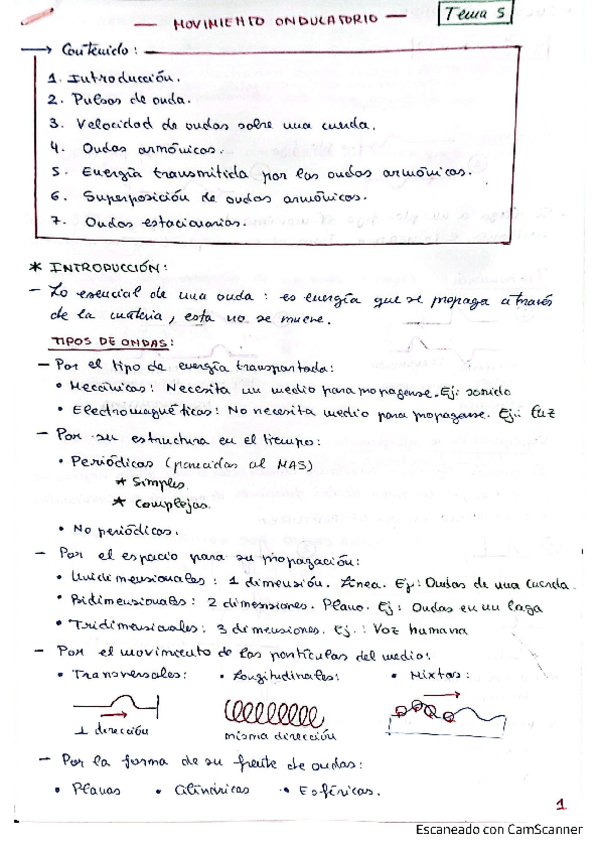 — MOVIMIENTO ONDUCATORIO — Tema 5
→ Contenido:
1. Introducción.
2. Pulsos de onda.
3. Velocidad de ondas sobre una cuerda.
4. Ondas armónicas.
5. Energía transmitida por las ondas armónicas.
6. Superposición de ondas armónicas.
7. Ondas estacionarias.
* INTRODUCCIÓN:
- Lo esencial de una onda: es energía que se propaga a través
de la materia, esta no se mueve.
TIPOS DE ONDAS:
- Por el tipo de energía transportada:
• Mecánicas: Necesita un medio para propagarse. Ej: sonido
• Electromagnéticas: No necesita medio para propagarse. Ej.: luz
- Por su estructura en el tiempo:
• Periódicas (parecidas al MAS)
* Simples.
* Complejas.
• No periódicas.
- Por el espacio para su propagación:
• Unidimensionales: 1 dimensión. Línea. Ej: Ondas de una cuerda.
• Bidimensionales: 2 dimensiones. Plano. Ej: Ondas en un lago
• Tridimensionales: 3 dimensiones. Ej.: Voz humana
- Por el movimiento de las partículas del medio:
• Transversales: • Longitudinales: • Mixtas:
⊥ dirección misma dirección
- Por la forma de su frente de ondas:
• Planas • Cilíndricas • Esféricas.
1
Escaneado con CamScanner